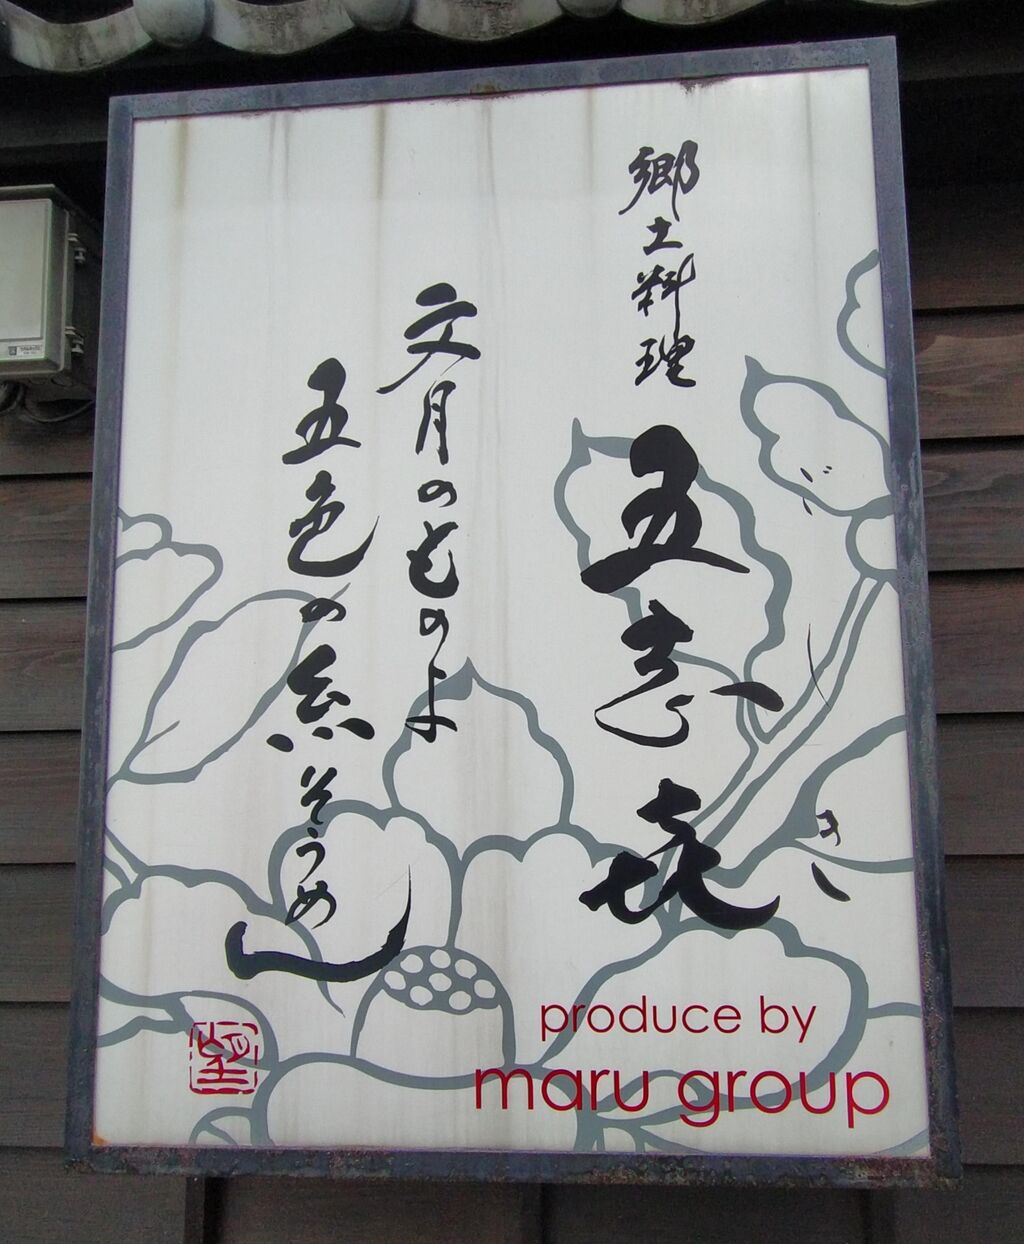 郷土料理
五志喜
ごしき
文月のものよ
五色の糸そうめん
produce by
maru group